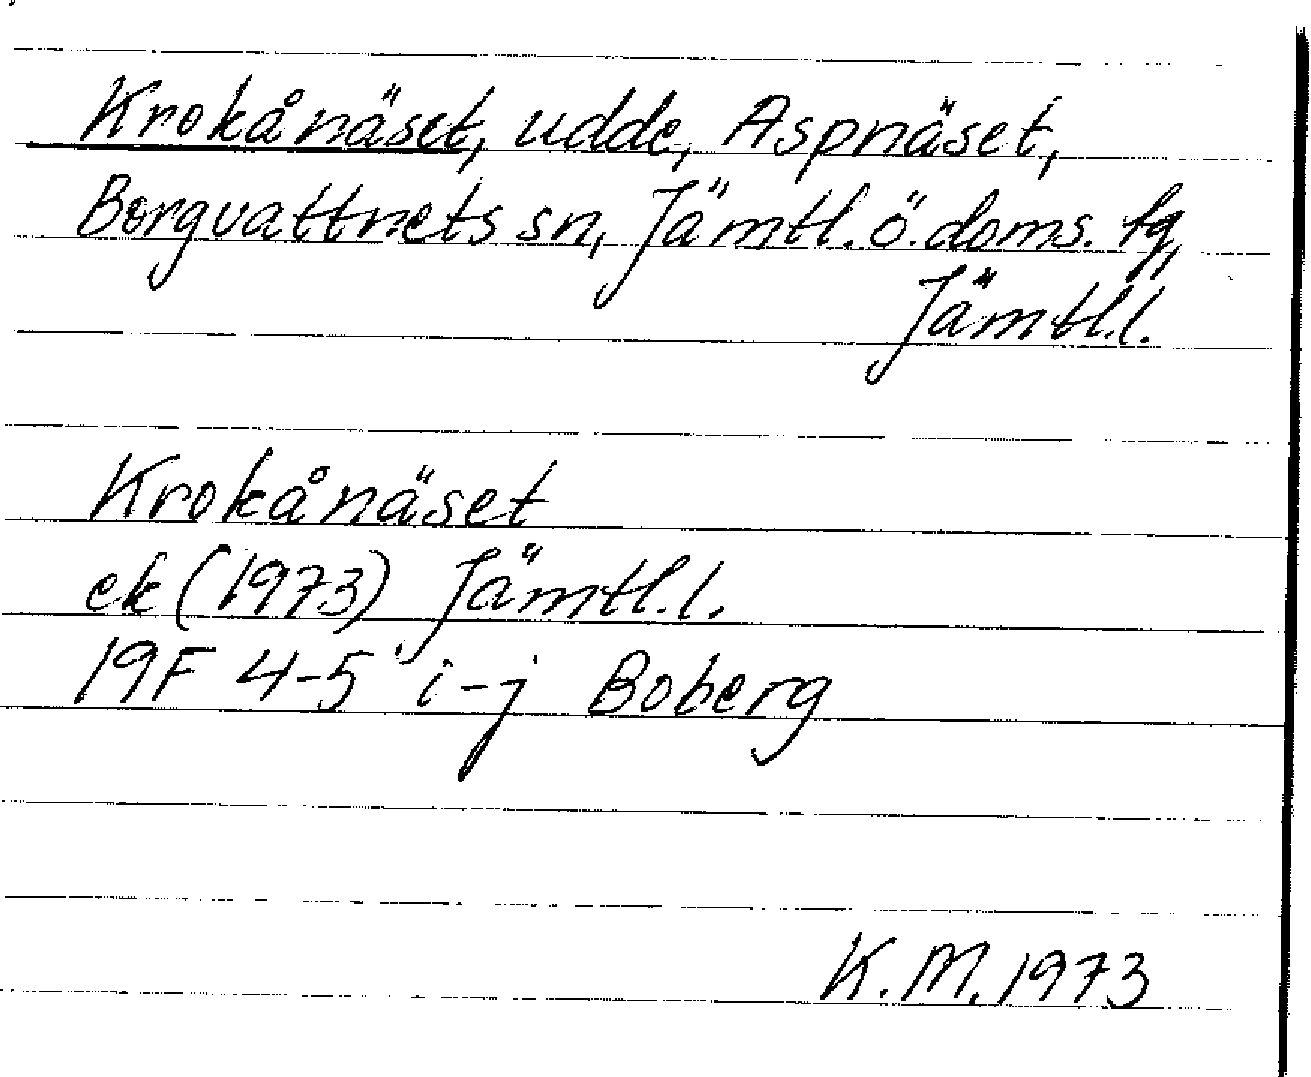 Krokånäset, udde, Aspnäset,
Borgvattnets sn, Jämtl. ö. doms. tg,
Jämtl.l.
Krokånäset
ek (1973) Jämtl.l.
19F 4-5 i-j Boberg
K.M. 1973